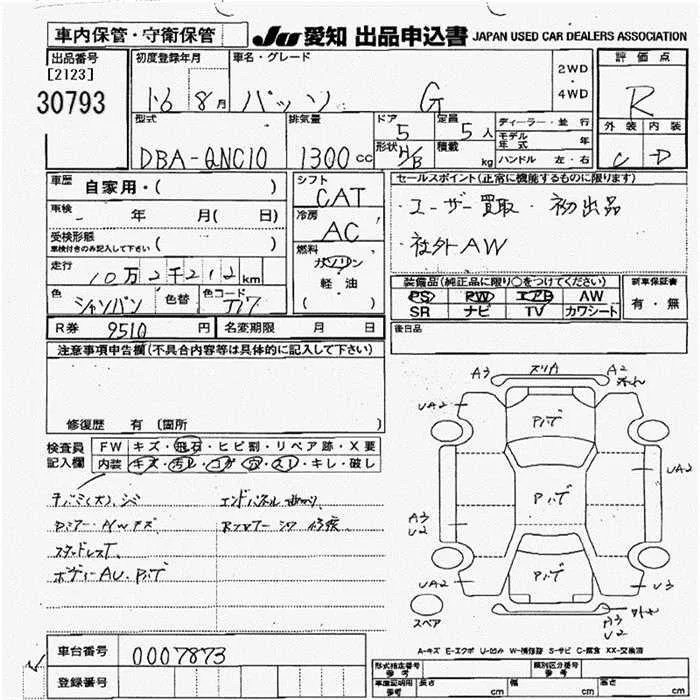 車内保管・守衛保管
JU 愛知 出品申込書 JAPAN USED CAR DEALERS ASSOCIATION
出品番号
[2123]
30793
初度登録年月
16 8月
車名・グレード
パッソ G
2WD
・
4WD
評価点
R
外装 内装
C D
型式
DBA-QNC10
排気量
1300cc
ドア
5
形状
H/B
定員
5人
積載
kg
ディーラー・並行
モデル年式 年
ハンドル 左・右
車歴 自家用・( )
車検 年 月( 日)
受検形態
車検付きのみ記入して下さい ( )
走行 10万2千212km
色 シャンパン 色替 色コード T17
R券 9510円 名変期限 月 日
シフト
CAT
冷房
AC
燃料
ガソリン
軽・油
( )
セールスポイント(正常に機能するものに限ります)
・ユーザー買取・初出品
・社外AW
装備品(純正品に限り○をつけてください)
PS PW エアB AW
SR ナビ TV カワシート
新車保証書
有・無
後日品
注意事項申告欄(不具合内容等は具体的に記入して下さい)
修復歴 有(箇所 )
検査員
記入欄
FW キズ・飛石・ヒビ割・リペア跡・X要
内装 キズ・汚れ・コゲ・穴・スレ・キレ・破し
エンドパネル曲り
スタッドレスT
ボディーAU・パテ
A3 スリA A2
UA2
パテ
パテ
パテ
UA2
A3
U2
UA2
U3
A3
U2
スペア
A-キズ E-エクボ U-凹み W-補修跡 S-サビ C-腐食 XX-交換済
車台番号 0007873
登録番号
形式指定番号
参考
類別区分番号
参考
車庫証明用
参考
長さ cm 幅 cm 高さ cm